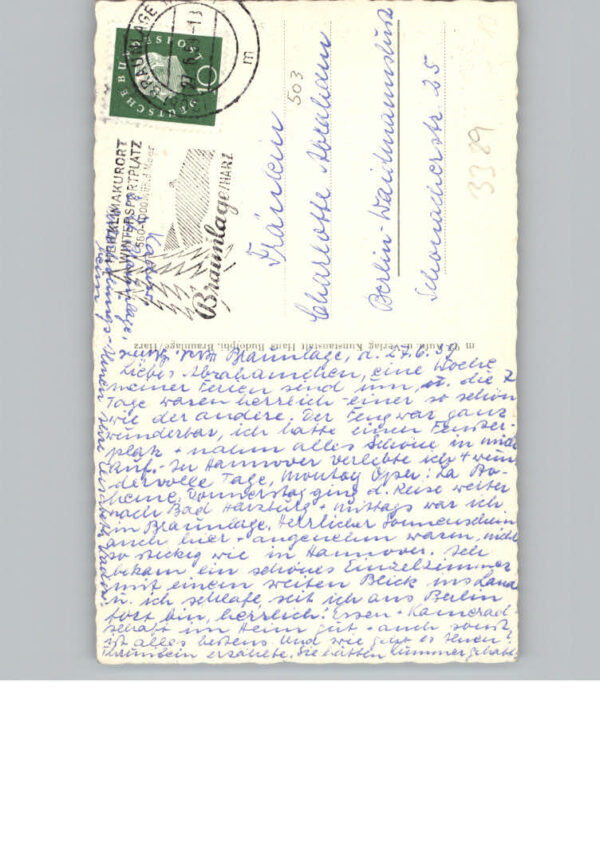 DEUTSCHE BUNDESPOST
10
BRAUNLAGE
HEILKLIMAKURORT
WINTERSPORTPLATZ
Braunlage/HARZ
503
3389
Fräulein
Charlotte Abraham
Berlin-Waidmannslust
Schonacherstr. 25
Verlag Kunstanstalt Hans Rudolphi, Braunlage/Harz
Braunlage, d. 27.6.
Liebes Abrahamchen, eine Woche
meiner Ferien sind nun, u. die 7
Tage waren herrlich einer so schön
wie der andere. Der Feng war ganz
wunderbar, ich hatte einen Fenster-
platz + nahm alles Schöne in mich
auf. In Hannover verlebte ich 4 wun-
dervolle Tage, Montag Oper: La Bo-
heme. Donnerstag ging d. Reise weiter
nach Bad Harzburg + mittags war ich
in Braunlage. Herrlicher Sonnenschein
auch hier + angenehm warm, nicht
so stickig wie in Hannover. Ich
bekam ein schönes Einzelzimmer
mit einem weiten Blick ins Land
u. ich schlafe, seit ich aus Berlin
fort bin, herrlich! Essen + Kamerad-
schaft im Heim gut + auch sonst
ist alles bestens. Und wie geht es Ihnen?
erzählte, Sie hätten Kummer gehabt